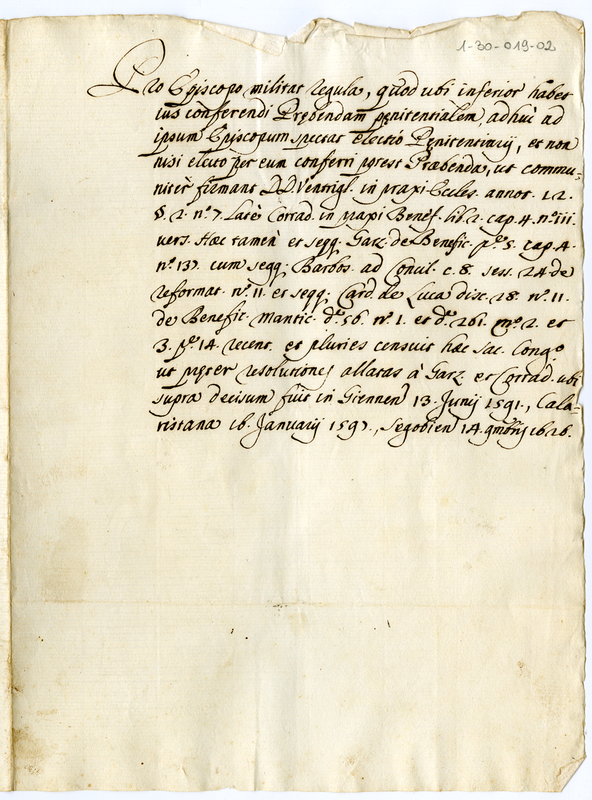 1-30-019-02
Pro Episcopo militat regula, quod ubi inferior habet
ius conferendi Prębendam pęnitentialem, adhuc ad
ipsum Episcopum spectat electio Pęnitentiarij, et non
nisi electo per eum conferri potest Præbenda, ut commu-
niter firmant DD Ventrigl. in praxi Eccles. annot. 12.
§. 2. nº. 7. Late Corrad. in praxi Benef. lib. 2. cap. 4. nº. 111.
vers. Hæc tamen et seqq. Garz. de Benefic. pª. 5. cap. 4.
nº. 137. cum seqq. Barbos. ad Concil. c. 8. sess. 24. de
reformat. nº. 11. et seqq. Card. de Luca disc. 28. nº. 11.
de Benefic. Mantic. dº. 56. nº. 1. et dº. 261. nº. 2. et
3. pº. 14. recent. et pluries censuit hæc Sac. Congº
ut pręter resolutiones allatas à Garz. et Corrad. ubi
supra decisum fuit in Giennen 13. Junij 1591., Cala-
ritana 16. Januarij 1597., Segobien 14. 9mbris 1626.